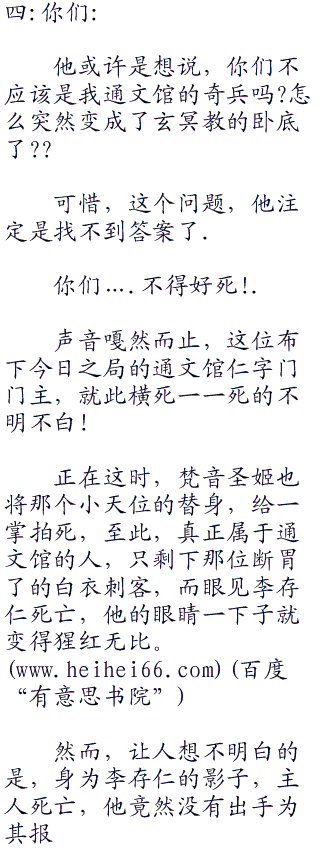 四:你们:
他或许是想说，你们不
应该是我通文馆的奇兵吗?怎
么突然变成了玄冥教的卧底
了??
可惜，这个问题，他注
定是找不到答案了.
你们….不得好死!.
声音嘎然而止，这位布
下今日之局的通文馆仁字门
门主，就此横死一一死的不
明不白!
正在这时，梵音圣姬也
将那个小天位的替身，给一
掌拍死，至此，真正属于通
文馆的人，只剩下那位断胃
了的白衣刺客，而眼见李存
仁死亡，他的眼睛一下子就
变得猩红无比。
(www.heihei66.com)(百度
“有意思书院”)
然而，让人想不明白的
是，身为李存仁的影子，主
人死亡，他竟然没有出手为
其报